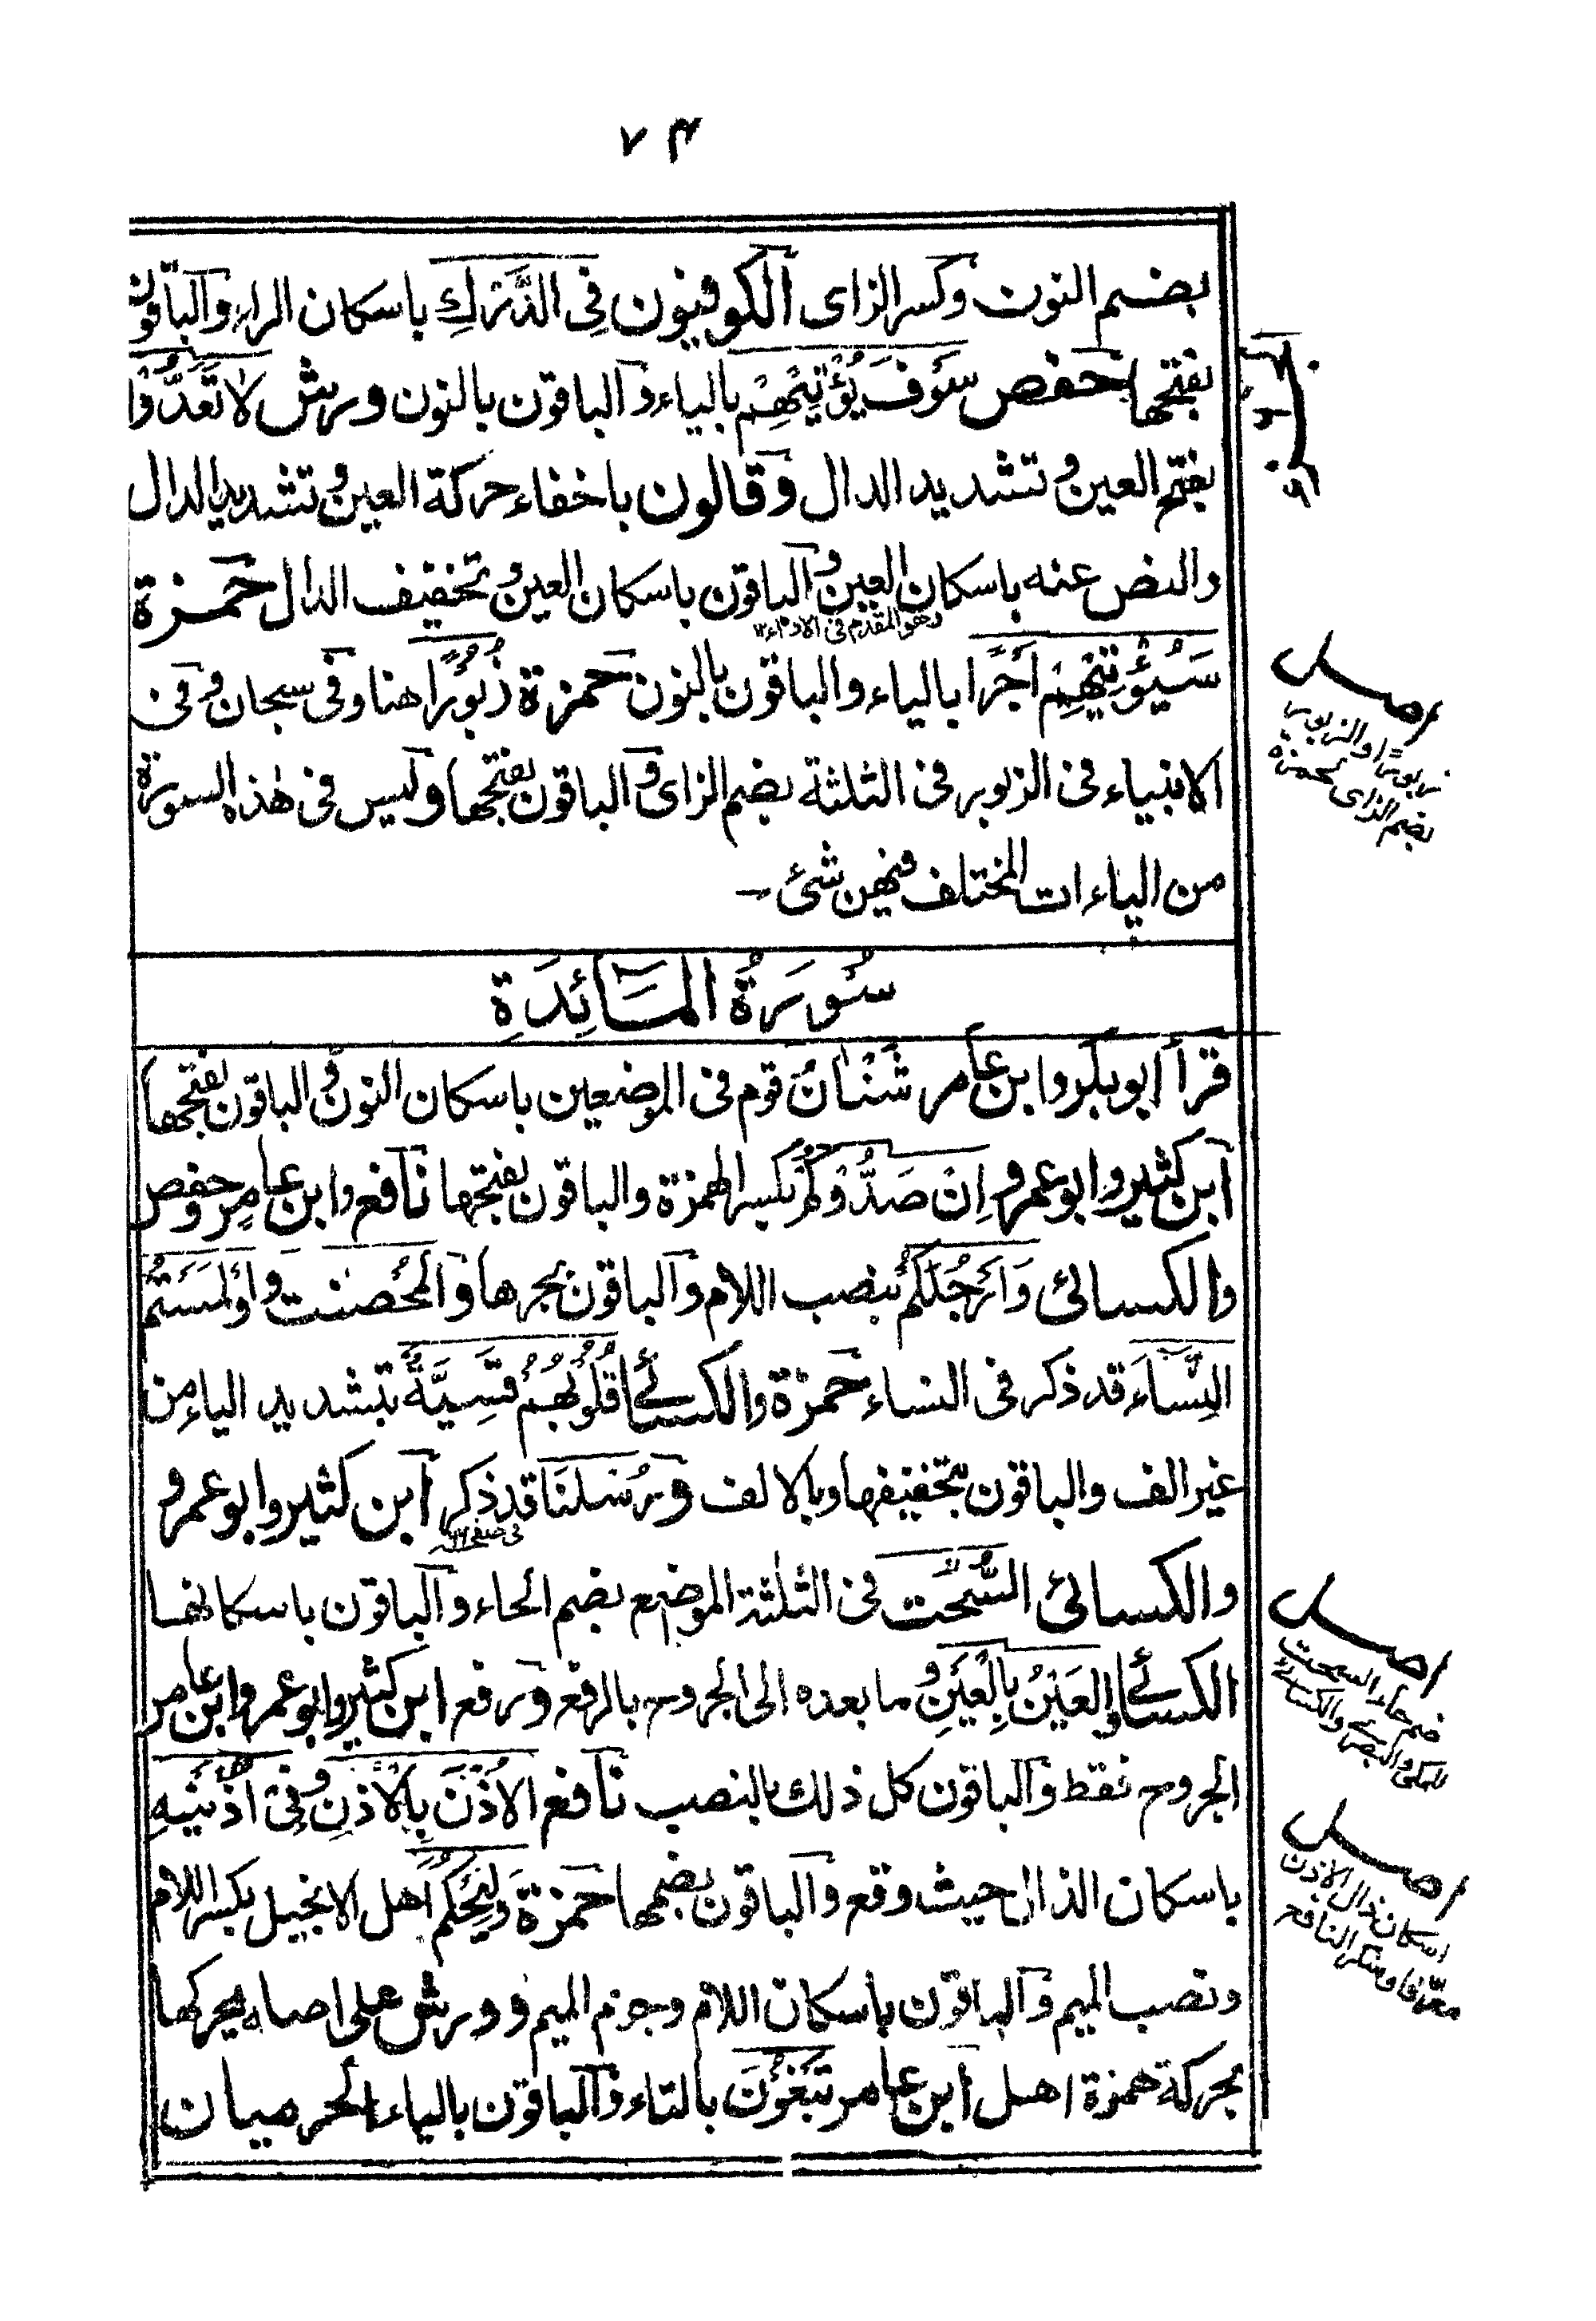 ٧٤
بضم النون وكسر الزاى الكوفيون فِى الدَّرْكِ باسكان الراء والباقون
بفتحها حفص سَوْفَ يُؤْتِيْهِمْ بالياء والباقون بالنون ورش لَا تَعَدُّوْا
بفتح العين وتشديد الدال وقالون باخفاء حركة العين وتشديد الدال
والنص عنه باسكان العين والباقون باسكان العين وتخفيف الدال حمزة
وهو المقدم فى الاداء١٢
سَيُؤْتِيْهِمْ اَجْرًا بالياء والباقون بالنون حمزة زُبُوْرًا هنا وفى سبحان وفى
الانبياء فى الزبور فى الثلثة بضم الزاى والباقون بفتحها وليس فى هٰذه السورة
من الياءات المختلف فيهن شئ ــ
اصل
زبورًا والزبور
بضم الزاى لحمزة
سُوْرَةُ الْمَآئِدَةِ
قرأ ابو بكر وابن عامر شَنْاٰنُ قوم فى الموضعين باسكان النون والباقون بفتحها
ابن كثير وابو عمرو اِنْ صَدُّوْكُمْ بكسر الهمزة والباقون بفتحها نافع وابن عامر وحفص
والكسائى وَاَرْجُلَكُمْ بنصب اللام والباقون بجرها والْمُحْصَنٰت واَوْلٰمَسْتُمُ
النِّسَآءَ قد ذكر فى النساء حمزة والكسائى قُلُوْبَهُمْ قَسِيَّةً بتشديد الياء من
غير الف والباقون بتخفيفها وبالالف ورُسُلنَا قد ذكر ابن كثير وابو عمرو
والكسائى السُّحُت فى الثلٰثة المواضع بضم الحاء والباقون باسكانها
الكسائى والعَيْنُ بِالْعَيْنِ وما بعده الى الجروح بالرفع ورفع ابن كثير وابو عمرو وابن عامر
الجروح فقط والباقون كل ذلك بالنصب نافع الْاُذْنَ بِالْاُذْنِ وفِىْ اُذْنَيْهِ
باسكان الذال حيث وقع والباقون بضمها حمزة وَلِيَحْكُمَ اهل الانجيل بكسر اللام
ونصب الميم والباقون باسكان اللام وجزم الميم وورش على اصله يحركها
بحركة همزة اهل ابن عامر تَبْغُوْنَ بالتاء والباقون بالياء الحرميان
اصل
ضم حاء السحت
للمكى والبصرى والكسائى
اصل
اسكان ذال الاذن
معرّفا ومنكرا لنافع